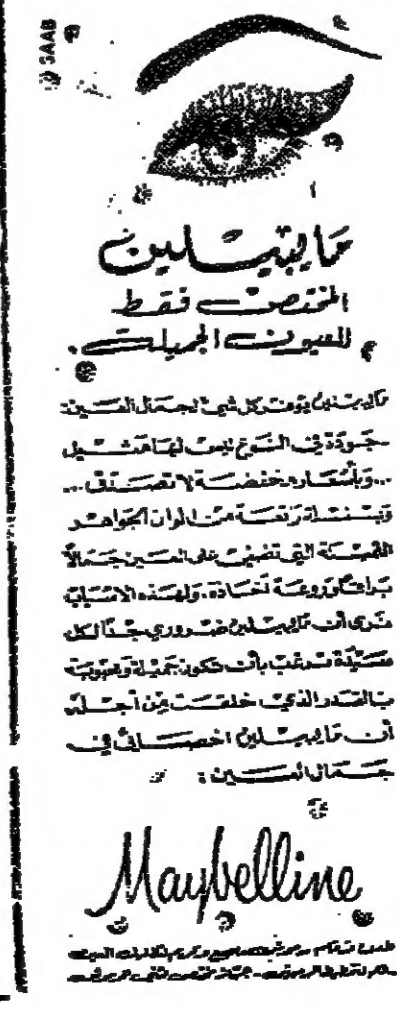 SAAB
مايبيلين
المختصة فقط
للعيون الجميلة.
مايبيلين يوفر كل شيء لجمال العين:
جودة في النوع ليس لها مثيل
...وبأسعار مخفضة لا تصدق...
وتشكيلة رائعة من الوان الجواهر
الثمينة التي تضفي على العين جمالاً
براقاً وروعة أخاذة. ولهذه الاسباب
نرى أن مايبيلين ضروري جداً لكل
سيدة ترغب بأن تكون جميلة ومحبوبة
بالقدر الذي خلقت من أجله
أن مايبيلين اخصائي في
جمال العين:
Maybelline